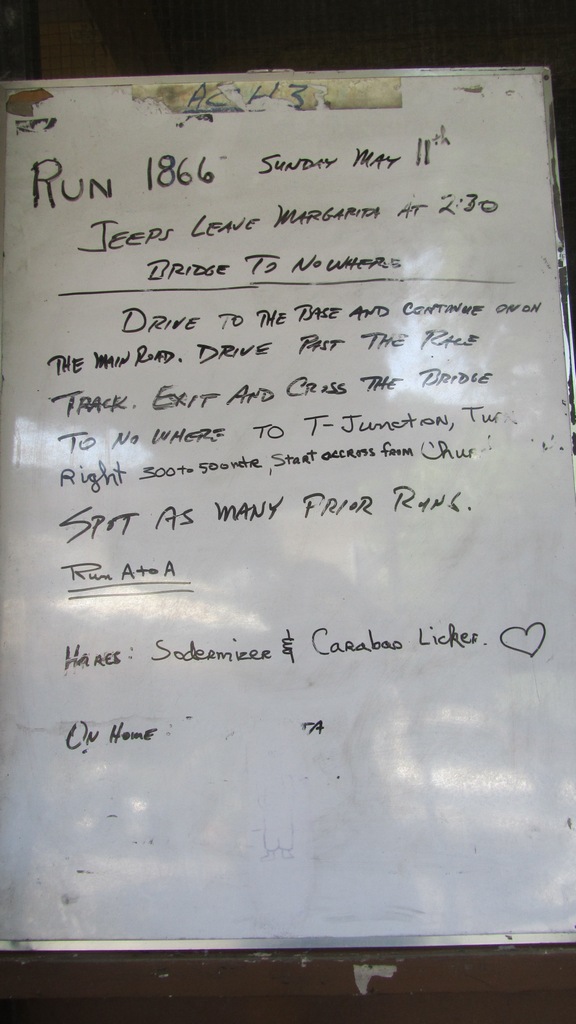 AC H3
RUN 1866 SUNDAY MAY 11th
JEEPS LEAVE MARGARITA AT 2:30
BRIDGE TO NOWHERE
DRIVE TO THE BASE AND CONTINUE ON ON
THE MAIN ROAD. DRIVE PAST THE RACE
TRACK. EXIT AND CROSS THE BRIDGE
TO NO WHERE TO T-JUNCTION,
Right 300 to 500 mtr, START ACCROSS FROM
SPOT AS MANY PRIOR RUNS.
Run A to A
HARES: Sodermizer & Carabao Licker. ♡
ON HOME: